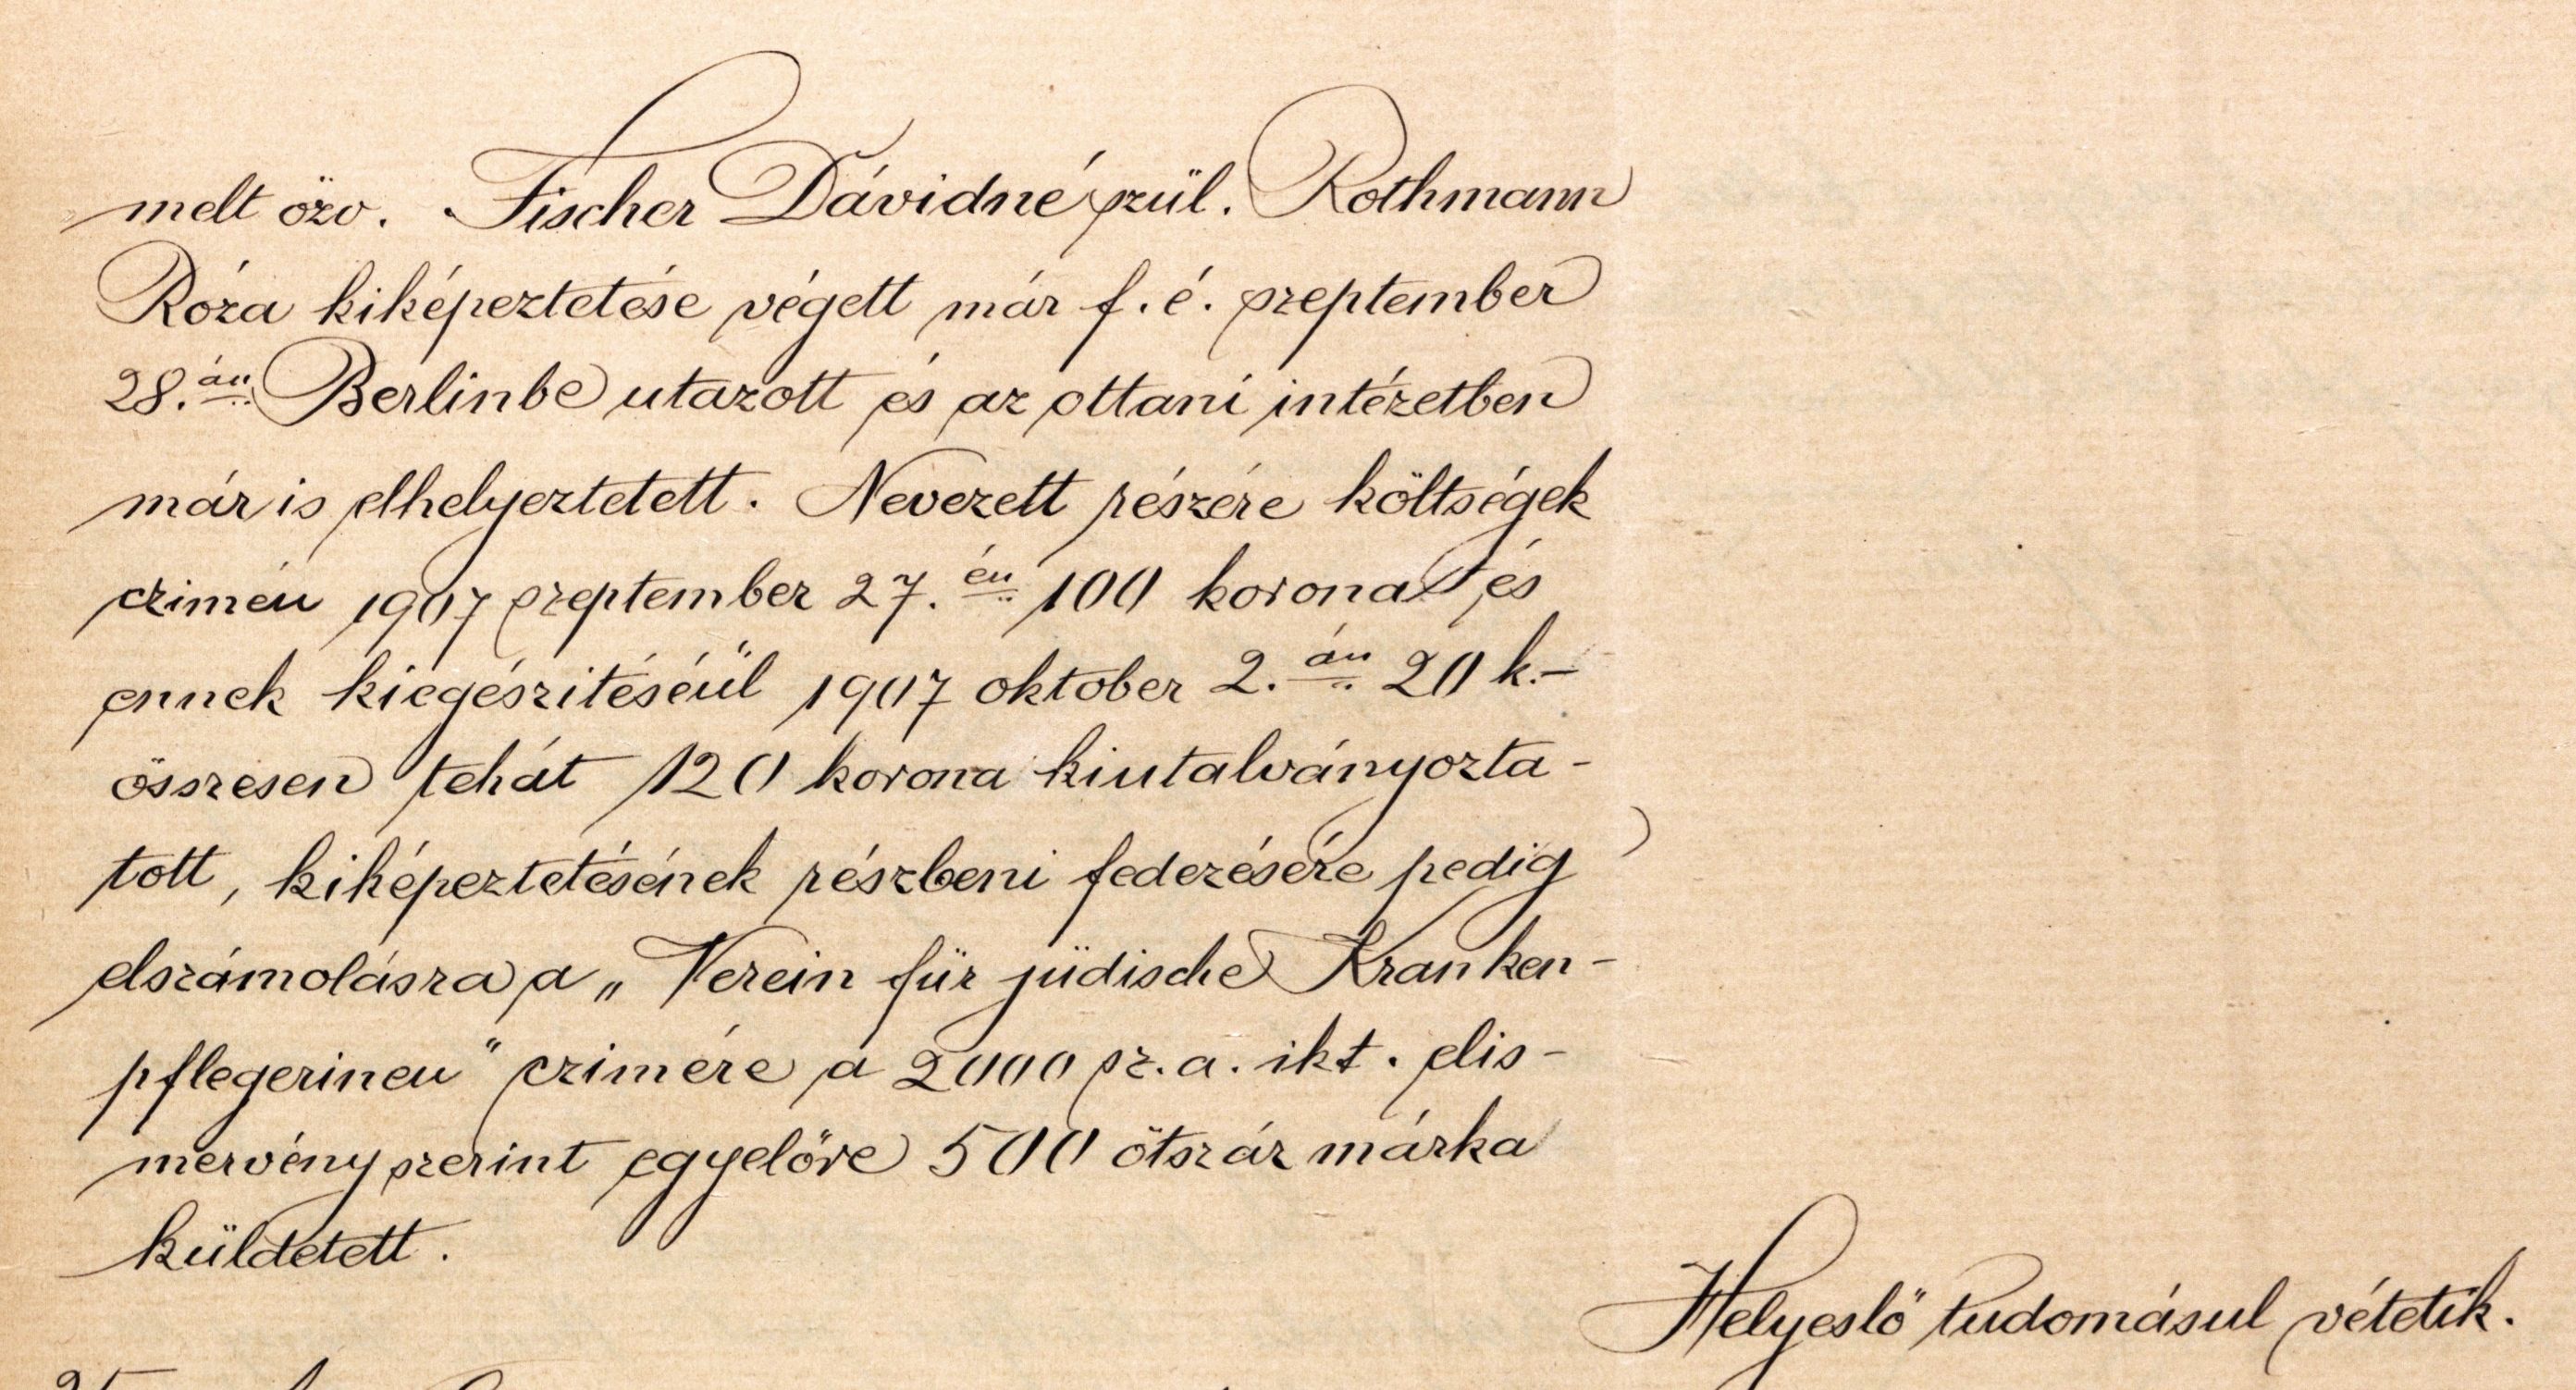 melt özv. Fischer Dávidné szül. Rothmann
Róza kiképeztetése végett már f. é. szeptember
28.án Berlinbe utazott és az ottani intézetben
már is elhelyeztetett. Nevezett részére költségek
czimén 1907 szeptember 27.én 100 korona és
ennek kiegészitéséül 1907 oktober 2.án 20 k.-
összesen tehát 120 korona kiutalványozta-
tott, kiképeztetésének részbeni fedezésére pedig
elszámolásra a „Verein für jüdische Kranken-
pflegerinen" czimére a 2000 sz. a. ikt. elis-
mervény szerint egyelőre 500 ötszáz márka
küldetett.
Helyeslő tudomásul vétetik.